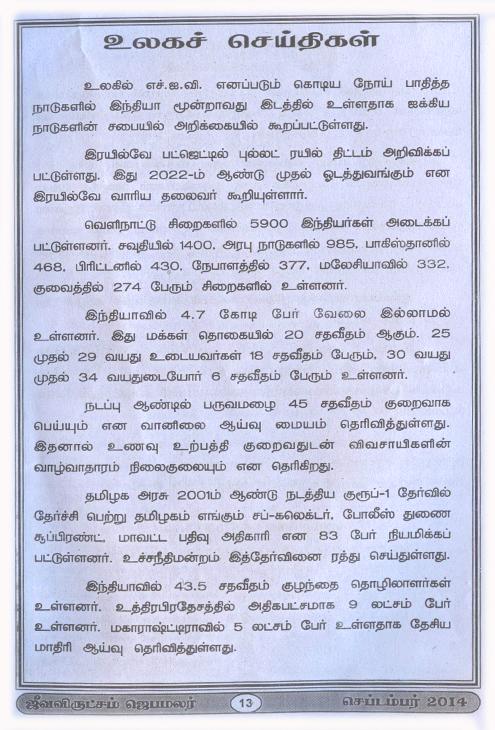 உலகச் செய்திகள்
உலகில் எச்.ஐ.வி. எனப்படும் கொடிய நோய் பாதித்த
நாடுகளில் இந்தியா மூன்றாவது இடத்தில் உள்ளதாக ஐக்கிய
நாடுகளின் சபையில் அறிக்கையில் கூறப்பட்டுள்ளது.
இரயில்வே பட்ஜெட்டில் புல்லட் ரயில் திட்டம் அறிவிக்கப்
பட்டுள்ளது. இது 2022-ம் ஆண்டு முதல் ஓடத்துவங்கும் என
இரயில்வே வாரிய தலைவர் கூறியுள்ளார்.
வெளிநாட்டு சிறைகளில் 5900 இந்தியர்கள் அடைக்கப்
பட்டுள்ளனர். சவுதியில் 1400, அரபு நாடுகளில் 985, பாகிஸ்தானில்
468, பிரிட்டனில் 430, நேபாளத்தில் 377, மலேசியாவில் 332,
குவைத்தில் 274 பேரும் சிறைகளில் உள்ளனர்.
இந்தியாவில் 4.7 கோடி பேர் வேலை இல்லாமல்
உள்ளனர். இது மக்கள் தொகையில் 20 சதவீதம் ஆகும். 25
முதல் 29 வயது உடையவர்கள் 18 சதவீதம் பேரும், 30 வயது
முதல் 34 வயதுடையோர் 6 சதவீதம் பேரும் உள்ளனர்.
நடப்பு ஆண்டில் பருவமழை 45 சதவீதம் குறைவாக
பெய்யும் என வானிலை ஆய்வு மையம் தெரிவித்துள்ளது.
இதனால் உணவு உற்பத்தி குறைவதுடன் விவசாயிகளின்
வாழ்வாதாரம் நிலைகுலையும் என தெரிகிறது.
தமிழக அரசு 2001ம் ஆண்டு நடத்திய குரூப்-1 தேர்வில்
தேர்ச்சி பெற்று தமிழகம் எங்கும் சப்-கலெக்டர், போலீஸ் துணை
சூப்பிரண்ட், மாவட்ட பதிவு அதிகாரி என 83 பேர் நியமிக்கப்
பட்டுள்ளனர். உச்சநீதிமன்றம் இத்தேர்வினை ரத்து செய்துள்ளது.
இந்தியாவில் 43.5 சதவீதம் குழந்தை தொழிலாளர்கள்
உள்ளனர். உத்திரபிரதேசத்தில் அதிகபட்சமாக 9 லட்சம் பேர்
உள்ளனர். மகாராஷ்ட்டிராவில் 5 லட்சம் பேர் உள்ளதாக தேசிய
மாதிரி ஆய்வு தெரிவித்துள்ளது.
ஜீவவிருட்சம் ஜெபமலர் 13 செப்டம்பர் 2014